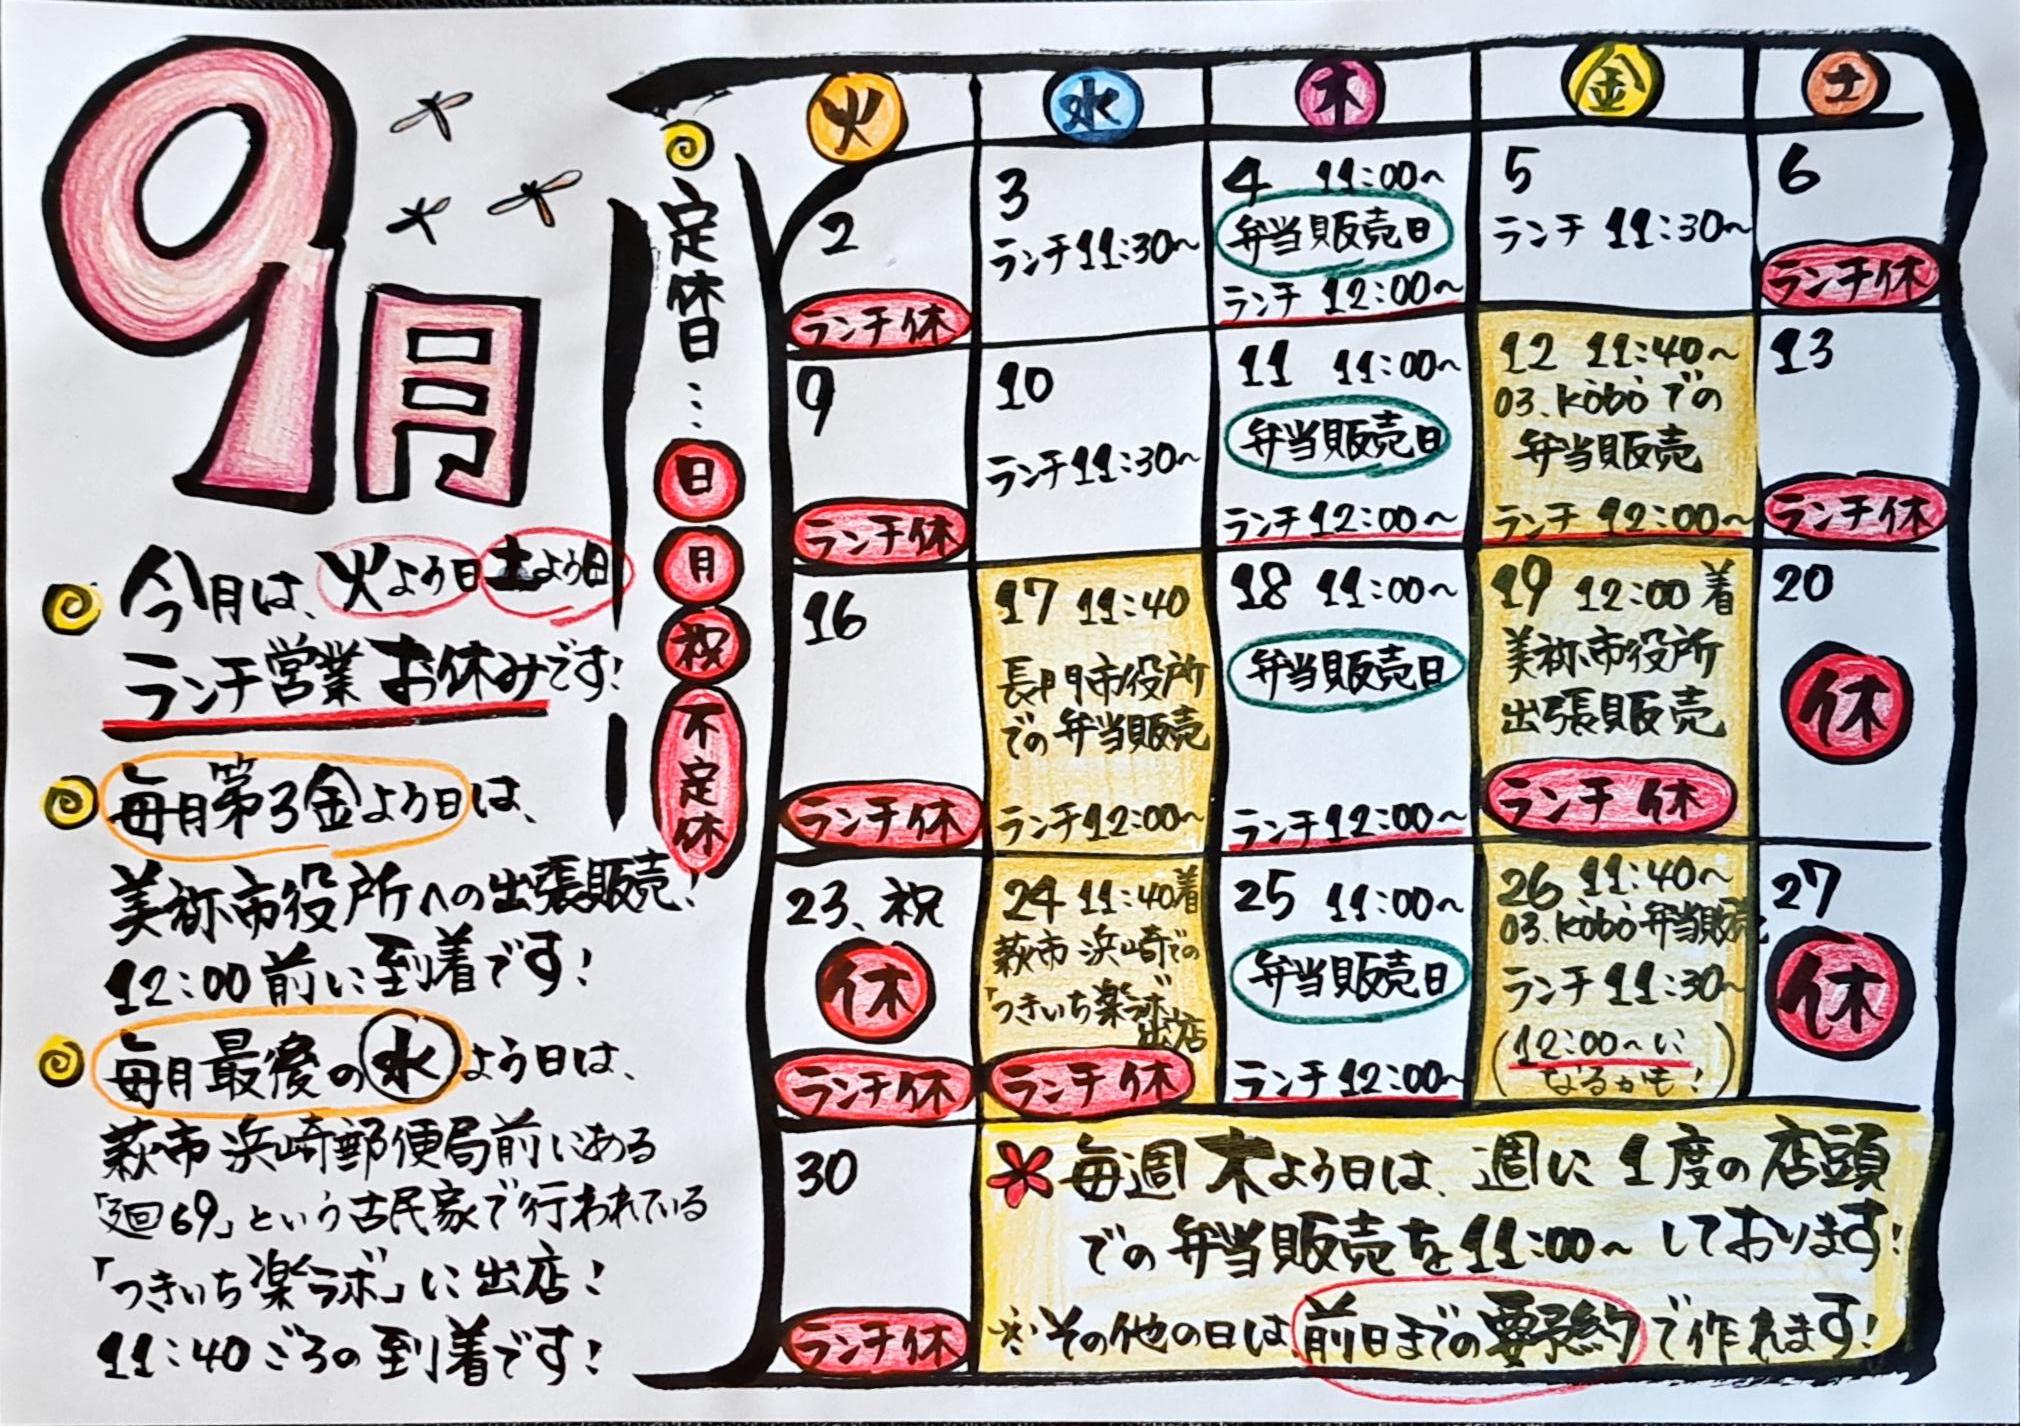 9月
今月は、火よう日土よう日
ランチ営業お休みです!
毎月第3金よう日は、
美祢市役所への出張販売!
12:00前に到着です!
毎月最後の水よう日は、
萩市浜崎郵便局前にある
「廻69」という古民家で行われている
「つきいち楽ラボ」に出店!
11:40ごろの到着です!
定休日…
日
月
祝
不定休
火 水 木 金 土
2
ランチ休
3
ランチ11:30〜
4 11:00〜
弁当販売日
ランチ 12:00〜
5
ランチ 11:30〜
6
ランチ休
9
ランチ休
10
ランチ11:30〜
11 11:00〜
弁当販売日
ランチ12:00〜
12 11:40〜
03.kobo での
弁当販売
ランチ 12:00〜
13
ランチ休
16
ランチ休
17 11:40
長門市役所
での弁当販売
ランチ12:00〜
18 11:00〜
弁当販売日
ランチ12:00〜
19 12:00着
美祢市役所
出張販売
ランチ休
20
休
23、祝
休
ランチ休
24 11:40着
萩市 浜崎での
「つきいち楽ラボ」
出店
ランチ休
25 11:00〜
弁当販売日
ランチ12:00〜
26 11:40〜
03.kobo弁当販売
ランチ 11:30〜
(12:00〜に
なるかも!)
27
休
30
ランチ休
毎週木よう日は、週に1度の店頭
での弁当販売を11:00〜しております!
※その他の日は、前日までの要予約で作れます!